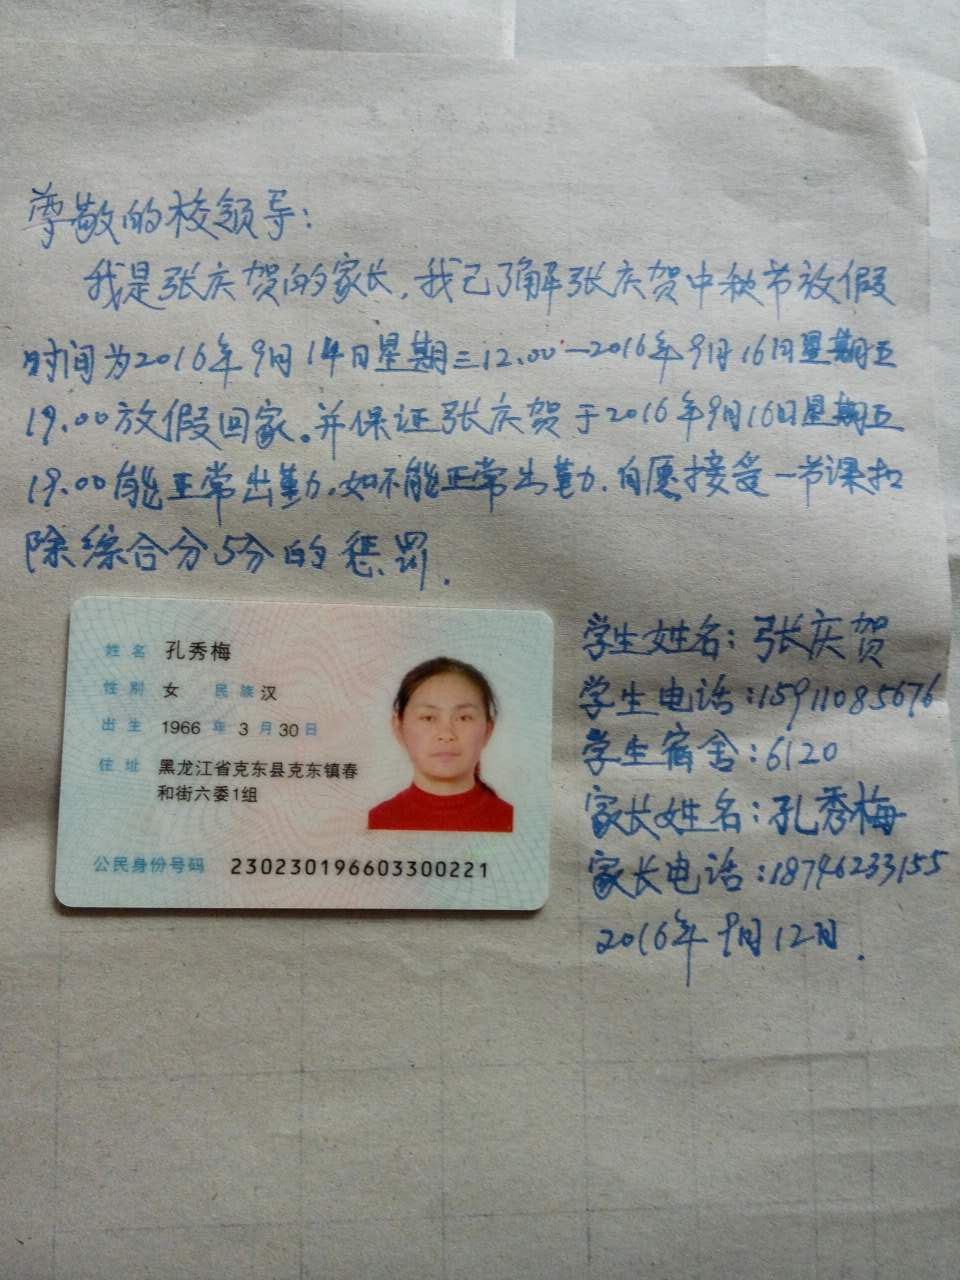 尊敬的校领导:
我是张庆贺的家长,我已了解张庆贺中秋节放假
时间为2016年9月14日星期三12.00—2016年9月16日星期五
19.00放假回家。并保证张庆贺于2016年9月16日星期五
19.00能正常出勤,如不能正常出勤.自愿接受一节课扣
除综合分5分的惩罚.
姓名 孔秀梅
性别 女 民族 汉
出生 1966 年 3 月 30 日
住址 黑龙江省克东县克东镇春
和街六委1组
公民身份号码 230230196603300221
学生姓名:张庆贺
学生电话:15911085676
学生宿舍:6120
家长姓名:孔秀梅
家长电话:18746233155
2016年9月12日.